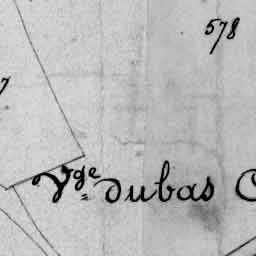 578
7
Vge dubas